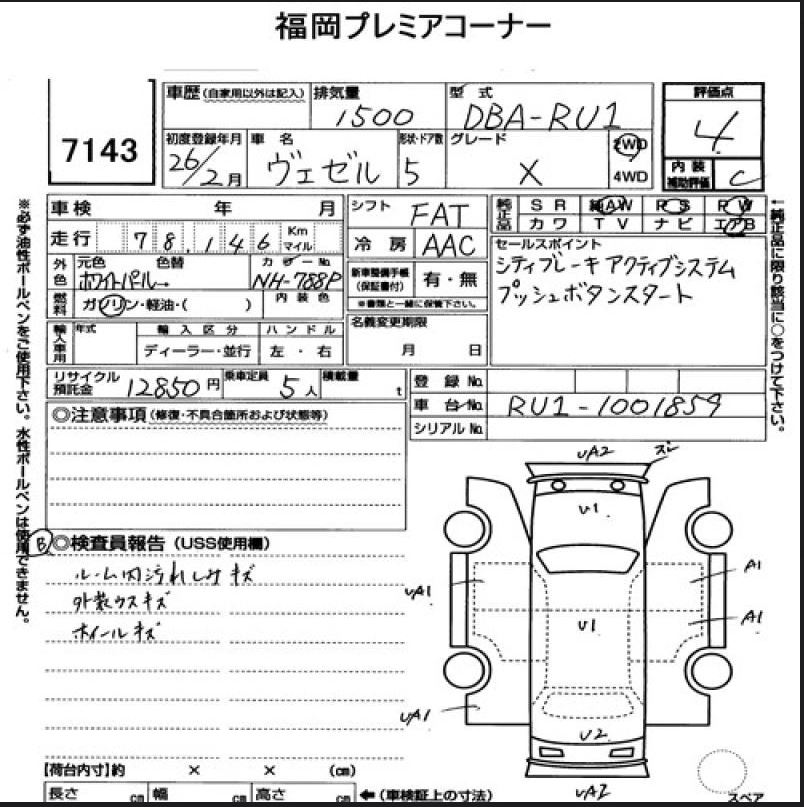 福岡プレミアコーナー
7143
車歴(自家用以外は記入) 排気量 1500 型式 DBA-RU1 評価点 4
初度登録年月 26/2月 車名 ヴェゼル 形状・ドア数 5 グレード X 2WD 4WD
内装補助評価 C
車検 年 月 シフト FAT
純正品 SR 純AW PS PW
カワ TV ナビ エアB
走行 78,146 Km マイル 冷房 AAC
セールスポイント
シティブレーキアクティブシステム
プッシュボタンスタート
外色 元色 ホワイトパール→ 色替 カラーNo NH-788P
新車整備手帳(保証書付) 有・無
※書類と一緒に保管下さい。
燃料 ガソリン・軽油・( ) 内装色
名義変更期限
月 日
輸入車用 年式 輸入区分 ハンドル
ディーラー・並行 左・右
リサイクル預託金 12850円 乗車定員 5人 積載量 t
登録No.
車台No. RU1-1001859
シリアルNo.
◎注意事項(修復・不具合箇所および状態等)
B ◎検査員報告(USS使用欄)
ルーム内汚れしみキズ
外装ウスキズ
ホイールキズ
UA2
ズレ
U1
A1
UA1
A1
U1
UA1
U2
UA2
スペア
【荷台内寸】約 × × (cm)
長さ cm 幅 cm 高さ cm ←(車検証上の寸法)
※必ず油性ボールペンをご使用下さい。水性ボールペンは使用できません。
←純正品に限り該当に○をつけて下さい。